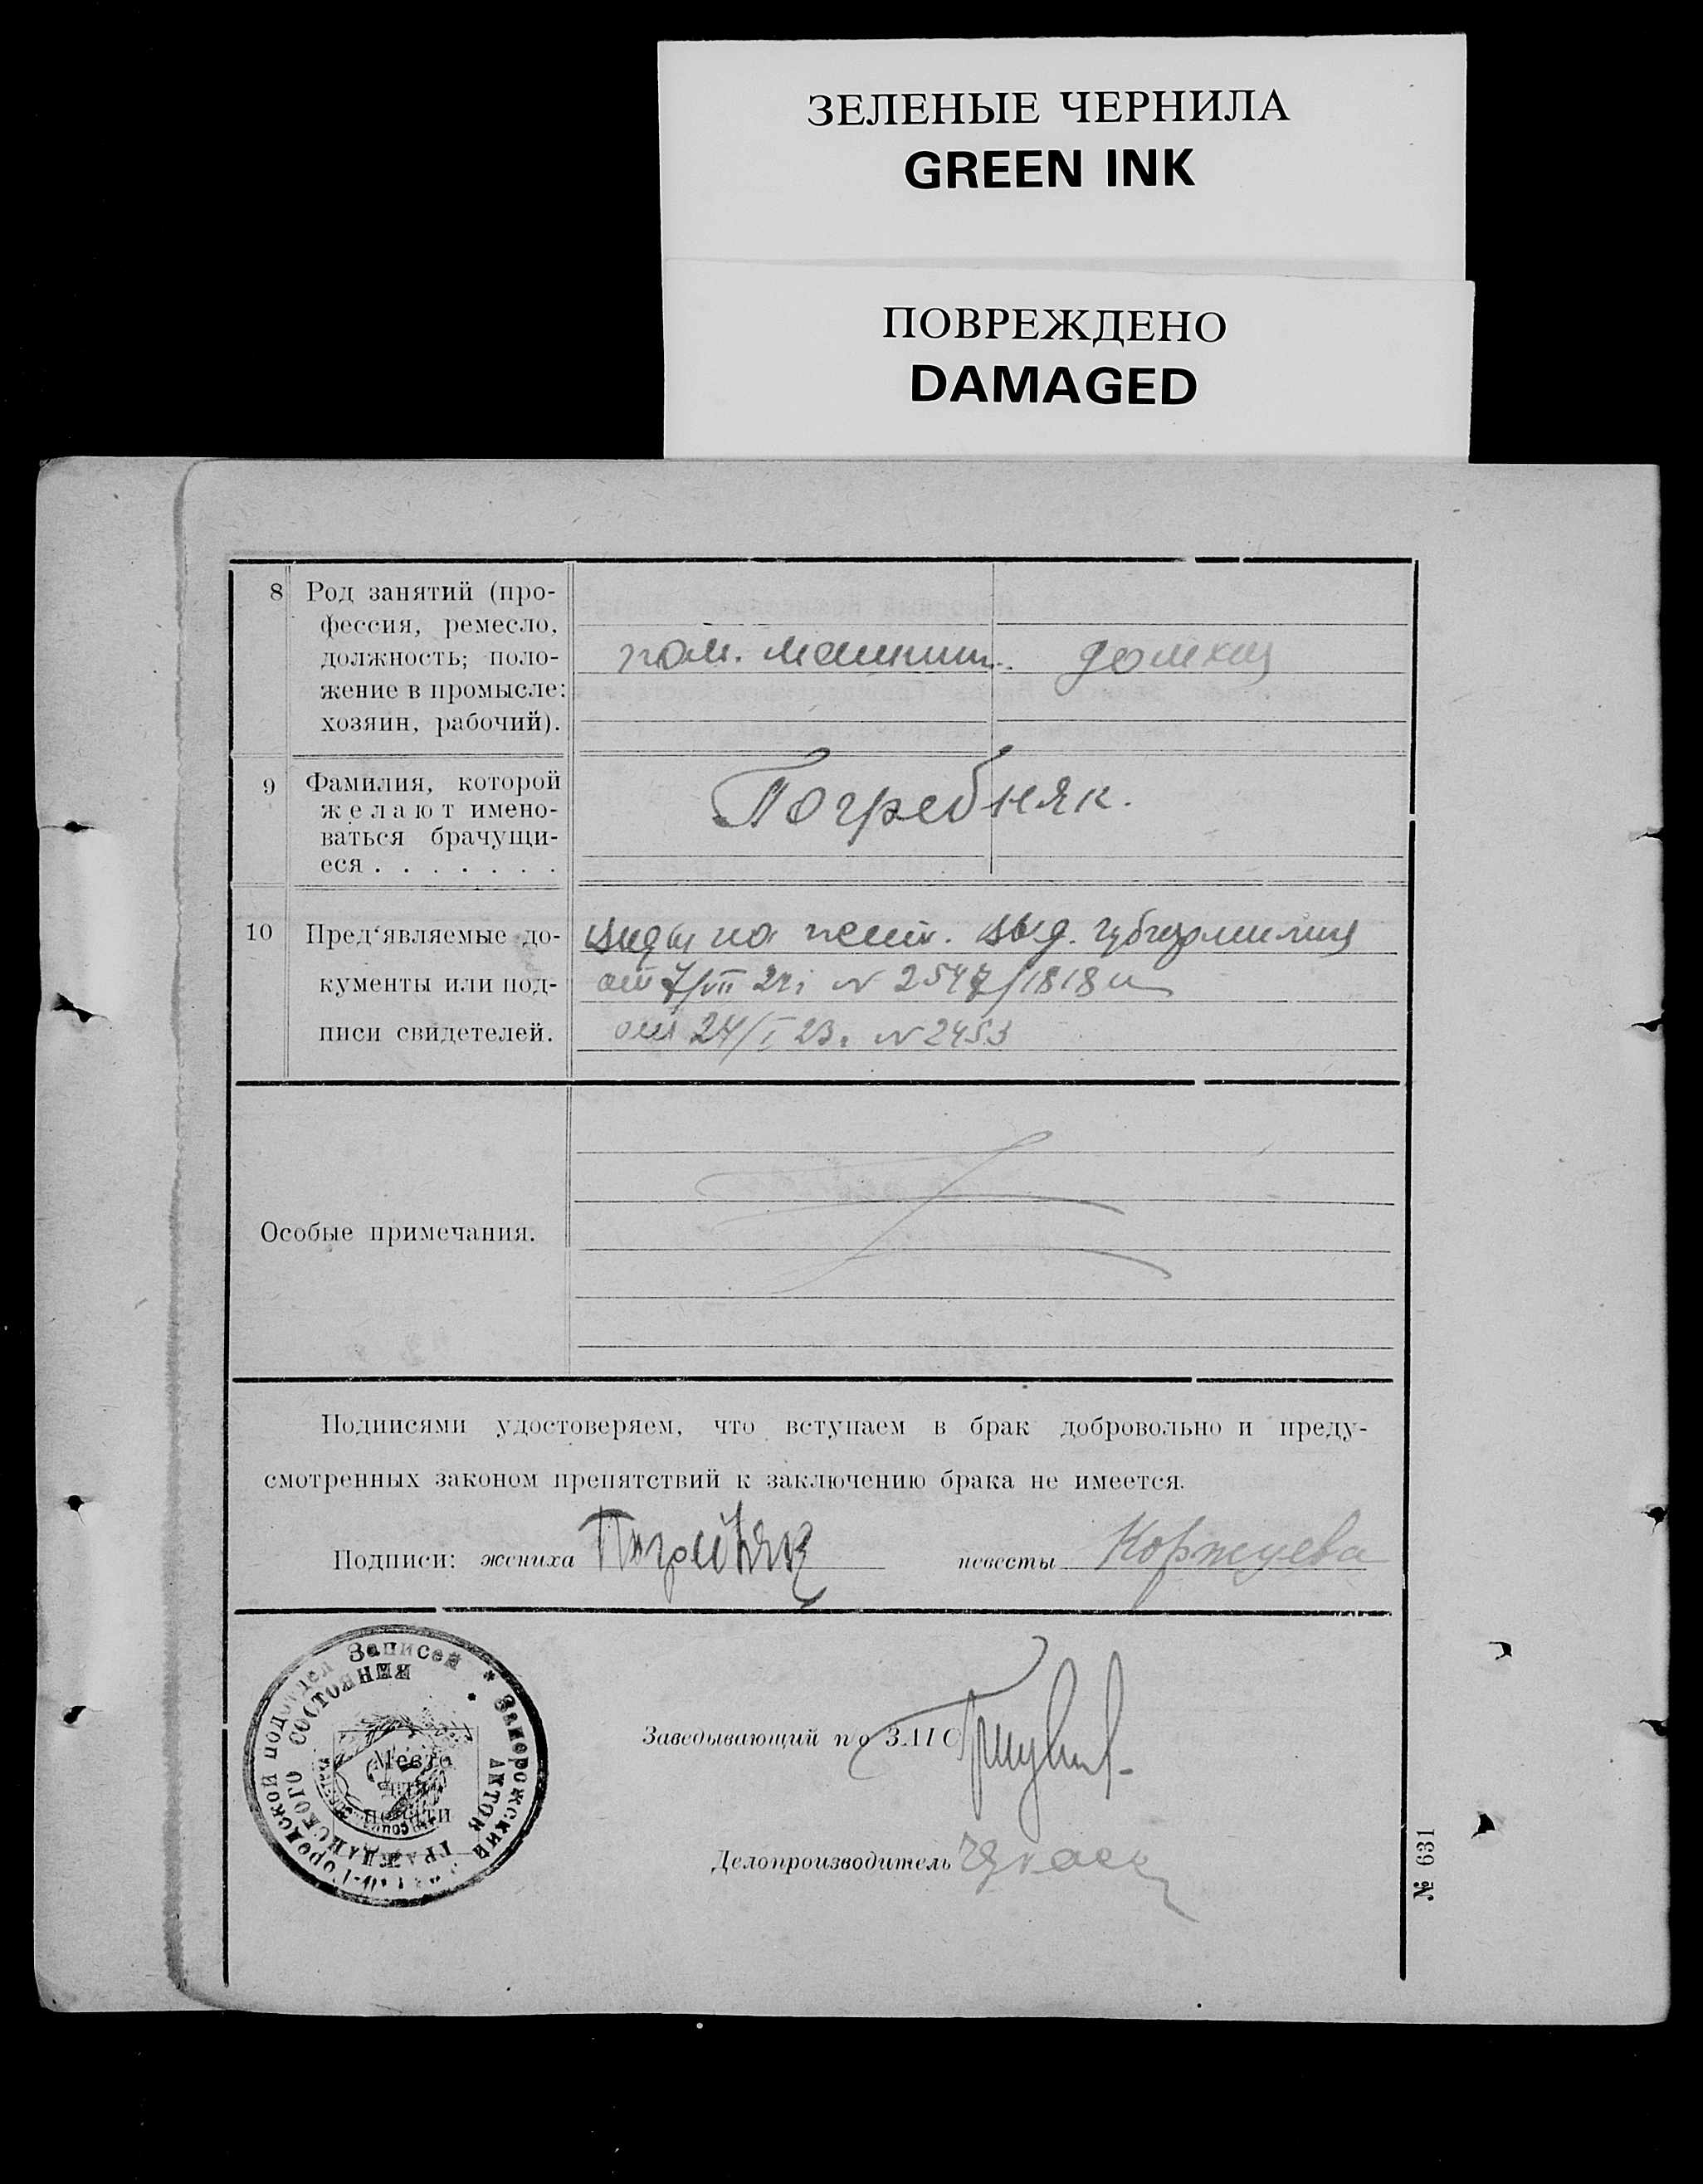 ЗЕЛЕНЫЕ ЧЕРНИЛА
GREEN INK
ПОВРЕЖДЕНО
DAMAGED
8 Род занятий (про-
фессия, ремесло,
должность; поло-
жение в промысле:
хозяин, рабочий).
пом. машин. домхоз
9 Фамилия, которой
желают имено-
ваться брачущи-
еся . . . . . . .
Погребняк.
10 Пред‘являемые до-
кументы или под-
писи свидетелей.
виды на жит. выд. губгормилиц
от 7/VII 22г № 2547/1818 и
от 24/I 23г № 2453
Особые примечания.
Подписями удостоверяем, что вступаем в брак добровольно и преду-
смотренных законом препятствий к заключению брака не имеется.
Подписи: жениха Погребняк невесты Коржуева
Запорожский Городской подотдел Записей
Актов Гражданского Состояния
Место
для
печати
Заведывающий п/о ЗАГС
Делопроизводитель
№ 631